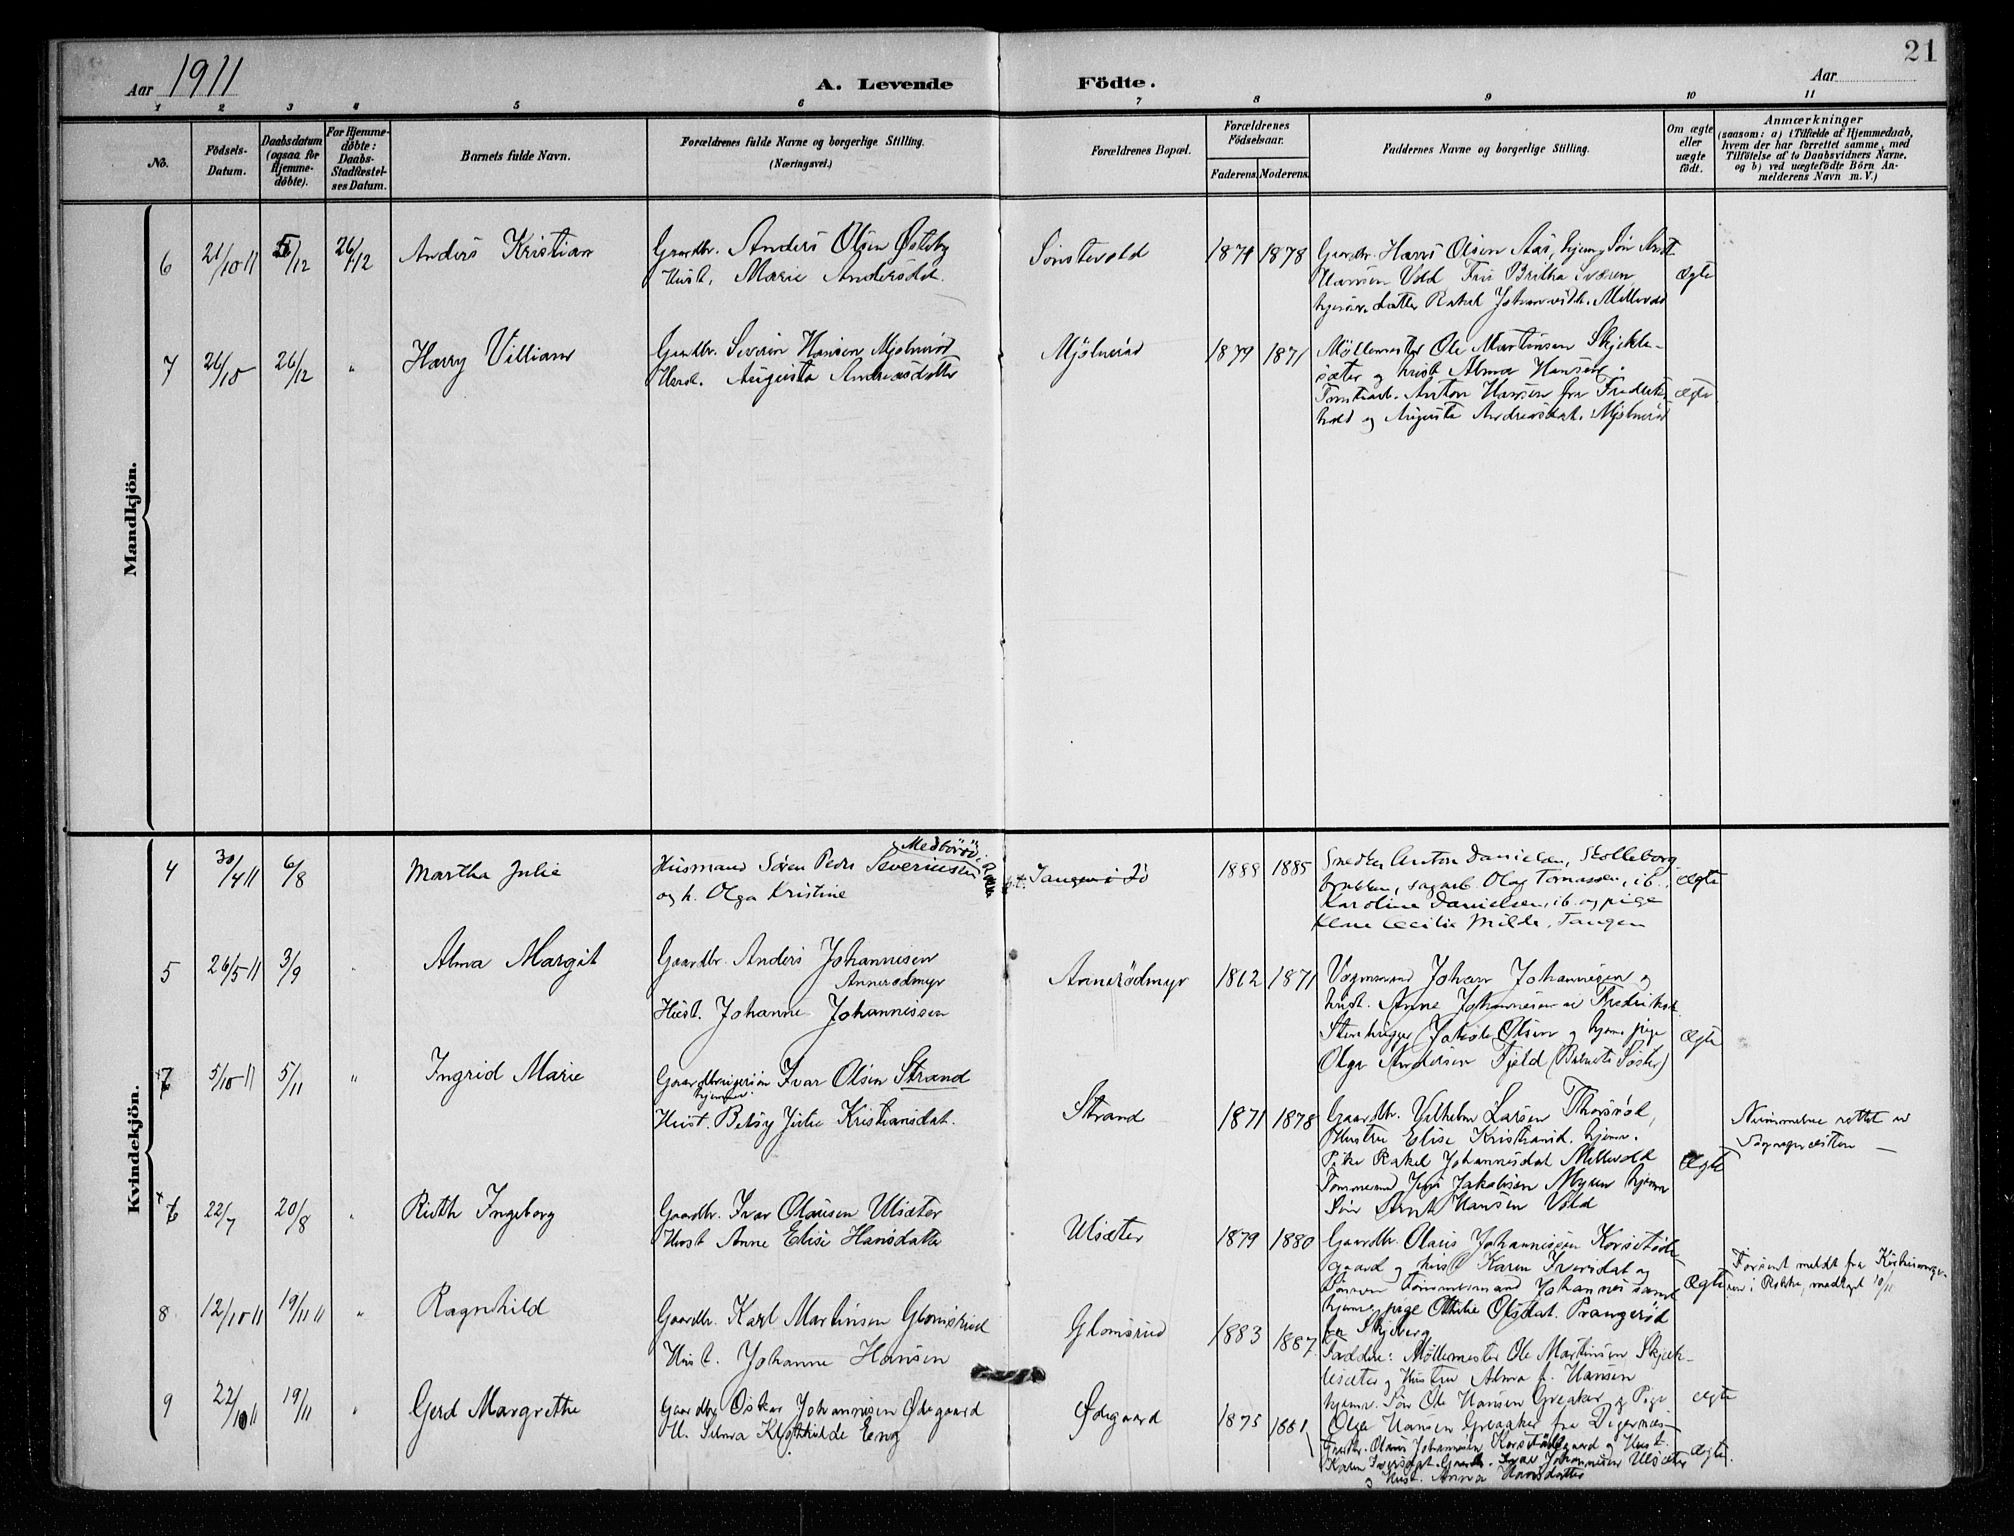 21
Aar 1911
A. Levende Födte.
Aar
1 2 3 4 5 6 7 8 9 10 11
No.
Födsels-Datum.
Daabsdatum (ogsaa for Hjemme-döbte).
For Hjemme-döbte: Daabs-Stadfæstel-ses Datum.
Barnets fulde Navn.
Forældrenes fulde Navne og borgerlige Stilling.
(Næringsvei.)
Forældrenes Bopæl.
Forældrenes Födselsaar.
Faderens. Moderens.
Faddernes Navne og borgerlige Stilling.
Om ægte eller uægte födt.
Anmærkninger
(saasom: a) i Tilfælde af Hjemmedaab,
hvem der har forrettet samme, med
Tilföielse af to Daabsvidners Navne,
og b) ved uægtefödte Börn An-
melderens Navn m. V.)
Mandkjön.
6 21/10 11 5/12 26/12 Anders Kristian
Gaardbr. Anders Olsen Østeby
Hust. Marie Andersdat.
Sönstevold 1874 1878
Gaardbr. Hans Olsen Aas, hjemv. Sön Bernt
Hansen Vold, Frü Bertha
hjemv. datter Rakel Johannesdt. Millevold
Ægte
7 26/10 26/12 " Harry Villiam
Gaardbr. Severin Hansen Mjölneröd
Hust. Augusta Andreasdatter
Mjölneröd 1879 1871
Möllemester Ole Martinsen Skjekle-
sæter og hust Alma Hansen
Tomtearb. Anton Hansen fra Fredriks
hald og Augusta Andreasdat. Mjölneröd
Ægte
Kvindekjön.
4 30/4 11 6/8 Martha Julie
Husmand Sören Peder Severinsen Medböröd i Rokke
og h. Olga Kristine
p.t. Tangen i Id 1888 1885
Snedker Anton Danielsen, Stolleborg
brukken, sagarb. Olaf Tomassen, i b.
Karoline Danielsen, i b. og pige
Klara Cecilie Milde, Tangen
Ægte
5 26/5 11 3/9 " Alma Margit
Gaardbr. Anders Johannesen
Annerödmyr
Hust. Johanne Johannessen
Annerödmyr 1862 1871
Vognmand Johan Johannesen og
hust. Anne Johannesen av Fredriksh.
Stenhugger Jakob Olsen og hjemv. pige
Olga Andersen Fjeld (Barnets Söster)
Ægte
+7 5/10 11 5/11 " Ingrid Marie
Gaardbrugersön Ivar Olsen Strand
hjemv.
Hust. Betsy Julie Kristiansdat.
Strand 1871 1878
Gaardbr. Vilhelm Larsen Thorsröd,
Hustru Elise Kristiansd. hjemv.
Pike Rakel Johannesdat Millevold
Tömmermd Jens Jakobsen Myren hjemv
Sön Bernt Hansen Vold
Ægte
Nummerne rettet av
Sognepræsten —
+6 22/7 20/8 " Ruth Ingeborg
Gaardbr. Ivar Olausen Ulsæter
Hust Anne Elise Hansdatter
Ulsæter 1879 1880
Gaardbr. Olaus Johannessen Korsetöde
gaard og hust Karen Iversdat og
Sönnen Tömmermand Johannes samt
hjemv. pige Othilie Olsdat. Prangeröd
fra Skjeberg
Ægte
Forsent meldt fra Kirkesange-
ren i Rokke, modtaget 10/11
8 12/10 11 19/11 11 " Ragnhild
Gaardbr. Karl Martinsen Glomsrud
Hust. Johanne Hansen
Glomsrud 1883 1887
Faddere: Möllemester Ole Martinsen Skjek-
lesæter og Hustru Alma f. Hansen
hjemv. Sön Ole Hansen Greaker og Pige
Olga Hansen Greaaker fra Digernes
Ægte
9 22/10 11 19/11 " Gerd Margrethe
Gaardbr Oskar Johannesen Ødegaard
H. Selma Klothilde Eng
Ødegaard 1875 1881
Gaardbr. Olaus Johannesen Korsetödegaard og Hust.
Karen Iversdat. Gaardb. Ivar Johannesen Ulsæter
og Hust. Anna Hansdatter
Ægte.